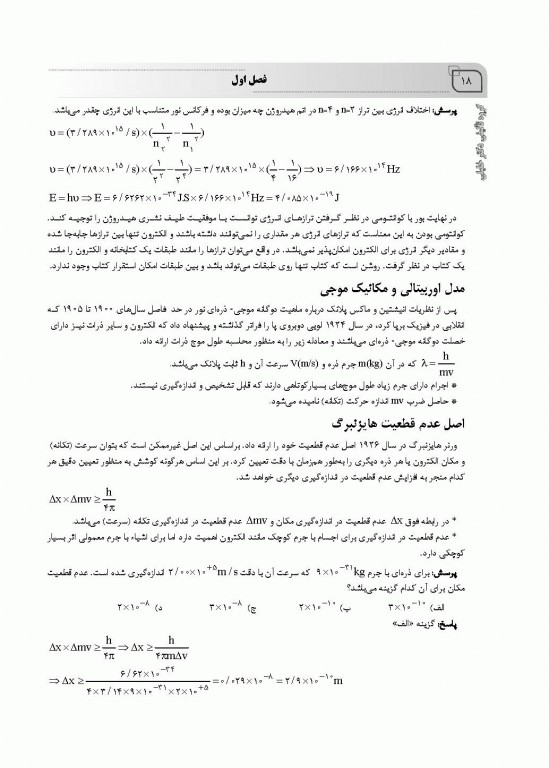 ۱۸
فصل اول
پرسش: اختلاف انرژی بین تراز n=۲ و n=۴ در اتم هیدروژن چه میزان بوده و فرکانس نور متناسب با این انرژی چقدر می‌باشد.
υ = (۳/۲۸۹×۱۰^۱۵ /s)×(۱/n₂^۲ − ۱/n₁^۲)
υ = (۳/۲۸۹×۱۰^۱۵ /s)×(۱/۲^۲ − ۱/۲^۴) = ۳/۲۸۹×۱۰^۱۵ ×(۱/۴ − ۱/۱۶) ⇒ υ = ۶/۱۶۶×۱۰^۱۴ Hz
E = hυ ⇒ E = ۶/۶۲۶۲×۱۰^−۳۴ J.S×۶/۱۶۶×۱۰^۱۴ Hz = ۴/۰۸۵×۱۰^−۱۹ J
در نهایت بور با کوانتومی در نظر گرفتن ترازهای انرژی توانست با موفقیت طیف نشری هیدروژن را توجیه کند.
کوانتومی بودن به این معناست که ترازهای انرژی هر مقداری را نمی‌توانند داشته باشند و الکترون تنها بین ترازها جابه‌جا شده
و مقادیر دیگر انرژی برای الکترون امکان‌پذیر نمی‌باشد. در واقع می‌توان ترازها را مانند طبقات یک کتابخانه و الکترون را مانند
یک کتاب در نظر گرفت. روشن است که کتاب تنها روی طبقات می‌تواند باشد و بین طبقات امکان استقرار کتاب وجود ندارد.
مدل اوربیتالی و مکانیک موجی
پس از نظریات انیشتین و ماکس پلانک درباره ماهیت دوگانه موجی- ذره‌ای نور در حد فاصل سال‌های ۱۹۰۰ تا ۱۹۰۵ که
انقلابی در فیزیک برپا کرد، در سال ۱۹۲۴ لویی دوبروی پا را فراتر گذاشته و پیشنهاد داد که الکترون و سایر ذرات نیز دارای
خصلت دوگانه موجی- ذره‌ای می‌باشند و معادله زیر را به منظور محاسبه طول موج ذرات ارائه داد.
λ = h/mv که در آن m(kg) جرم ذره و V(m/s) سرعت آن و h ثابت پلانک می‌باشد.
* اجرام دارای جرم زیاد طول موج‌های بسیارکوتاهی دارند که قابل تشخیص و اندازه‌گیری نیستند.
* حاصل ضرب mv اندازه حرکت (تکانه) نامیده می‌شود.
اصل عدم قطعیت هایزنبرگ
ورنر هایزنبرگ در سال ۱۹۲۶ اصل عدم قطعیت خود را ارائه داد. براساس این اصل غیرممکن است که بتوان سرعت (تکانه)
و مکان الکترون یا هر ذره دیگری را به‌طور هم‌زمان با دقت تعیین کرد. بر این اساس هرگونه کوشش به منظور تعیین دقیق هر
کدام منجر به افزایش عدم قطعیت در اندازه‌گیری دیگری خواهد شد.
Δx×Δmv ≥ h/۴π
* در رابطه فوق Δx عدم قطعیت در اندازه‌گیری مکان و Δmv عدم قطعیت در اندازه‌گیری تکانه (سرعت) می‌باشد.
* عدم قطعیت در اندازه‌گیری برای اجسام با جرم کوچک مانند الکترون اهمیت دارد اما برای اشیاء با جرم معمولی اثر بسیار
کوچکی دارد.
پرسش: برای ذره‌ای با جرم ۹×۱۰^−۳۱ kg که سرعت آن با دقت ۲/۰۰×۱۰^+۵ m/s اندازه‌گیری شده است. عدم قطعیت
مکان برای آن کدام گزینه می‌باشد؟
الف) ۳×۱۰^−۱۰ ب) ۲×۱۰^−۱۰ ج) ۳×۱۰^−۸ د) ۲×۱۰^−۸
پاسخ: گزینه «الف»
Δx×Δmv ≥ h/۴π ⇒ Δx ≥ h/۴πmΔv
⇒ Δx ≥ ۶/۶۲×۱۰^−۳۴ / ۴×۳/۱۴×۹×۱۰^−۳۱×۲×۱۰^+۵ = ۰/۰۲۹×۱۰^−۸ = ۲/۹×۱۰^−۱۰ m